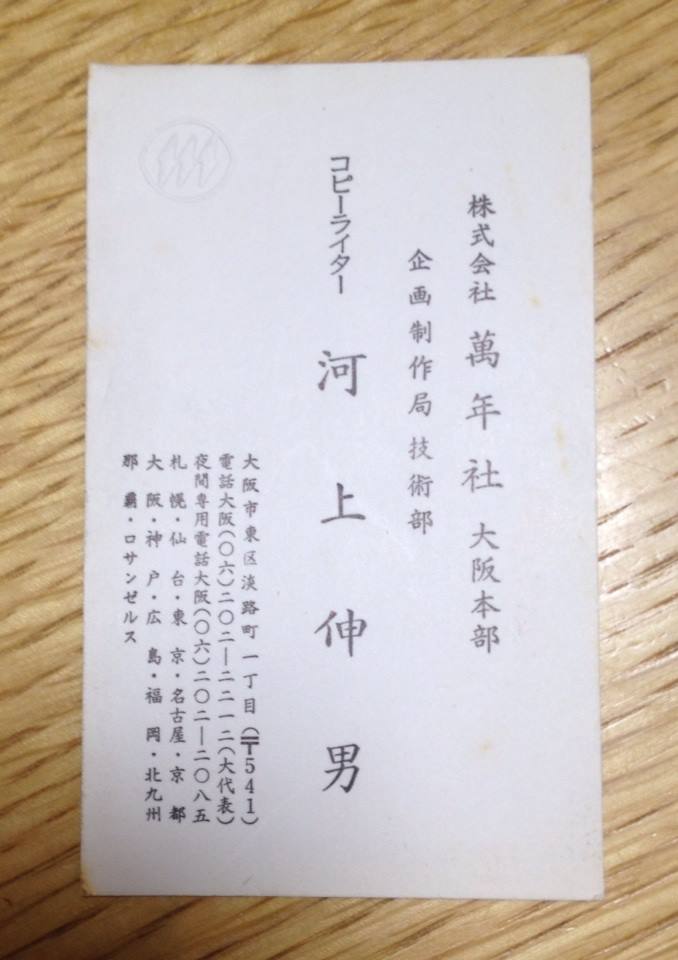 株式会社 萬年社 大阪本部
企画制作局 技術部
コピーライター 河上伸男
大阪市東区淡路町一丁目(〒541)
電話大阪(〇六)二〇二―二二一二(大代表)
夜間専用電話大阪(〇六)二〇二―二〇八五
札幌・仙台・東京・名古屋・京都
大阪・神戸・広島・福岡・北九州
那覇・ロサンゼルス